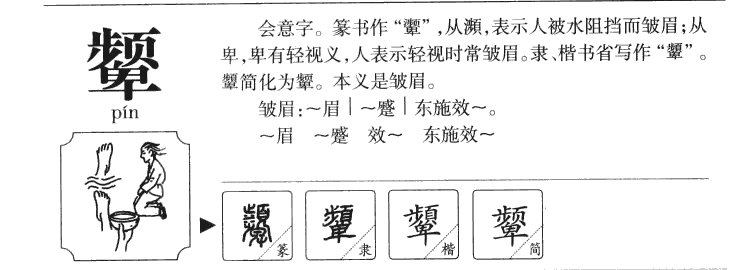 颦
pín
会意字。篆书作“顰”,从瀕,表示人被水阻挡而皱眉;从
卑,卑有轻视义,人表示轻视时常皱眉。隶、楷书省写作“顰”。
顰简化为颦。本义是皱眉。
皱眉:～眉｜～蹙｜东施效～。
～眉　～蹙　效～　东施效～
篆
隶
楷
简